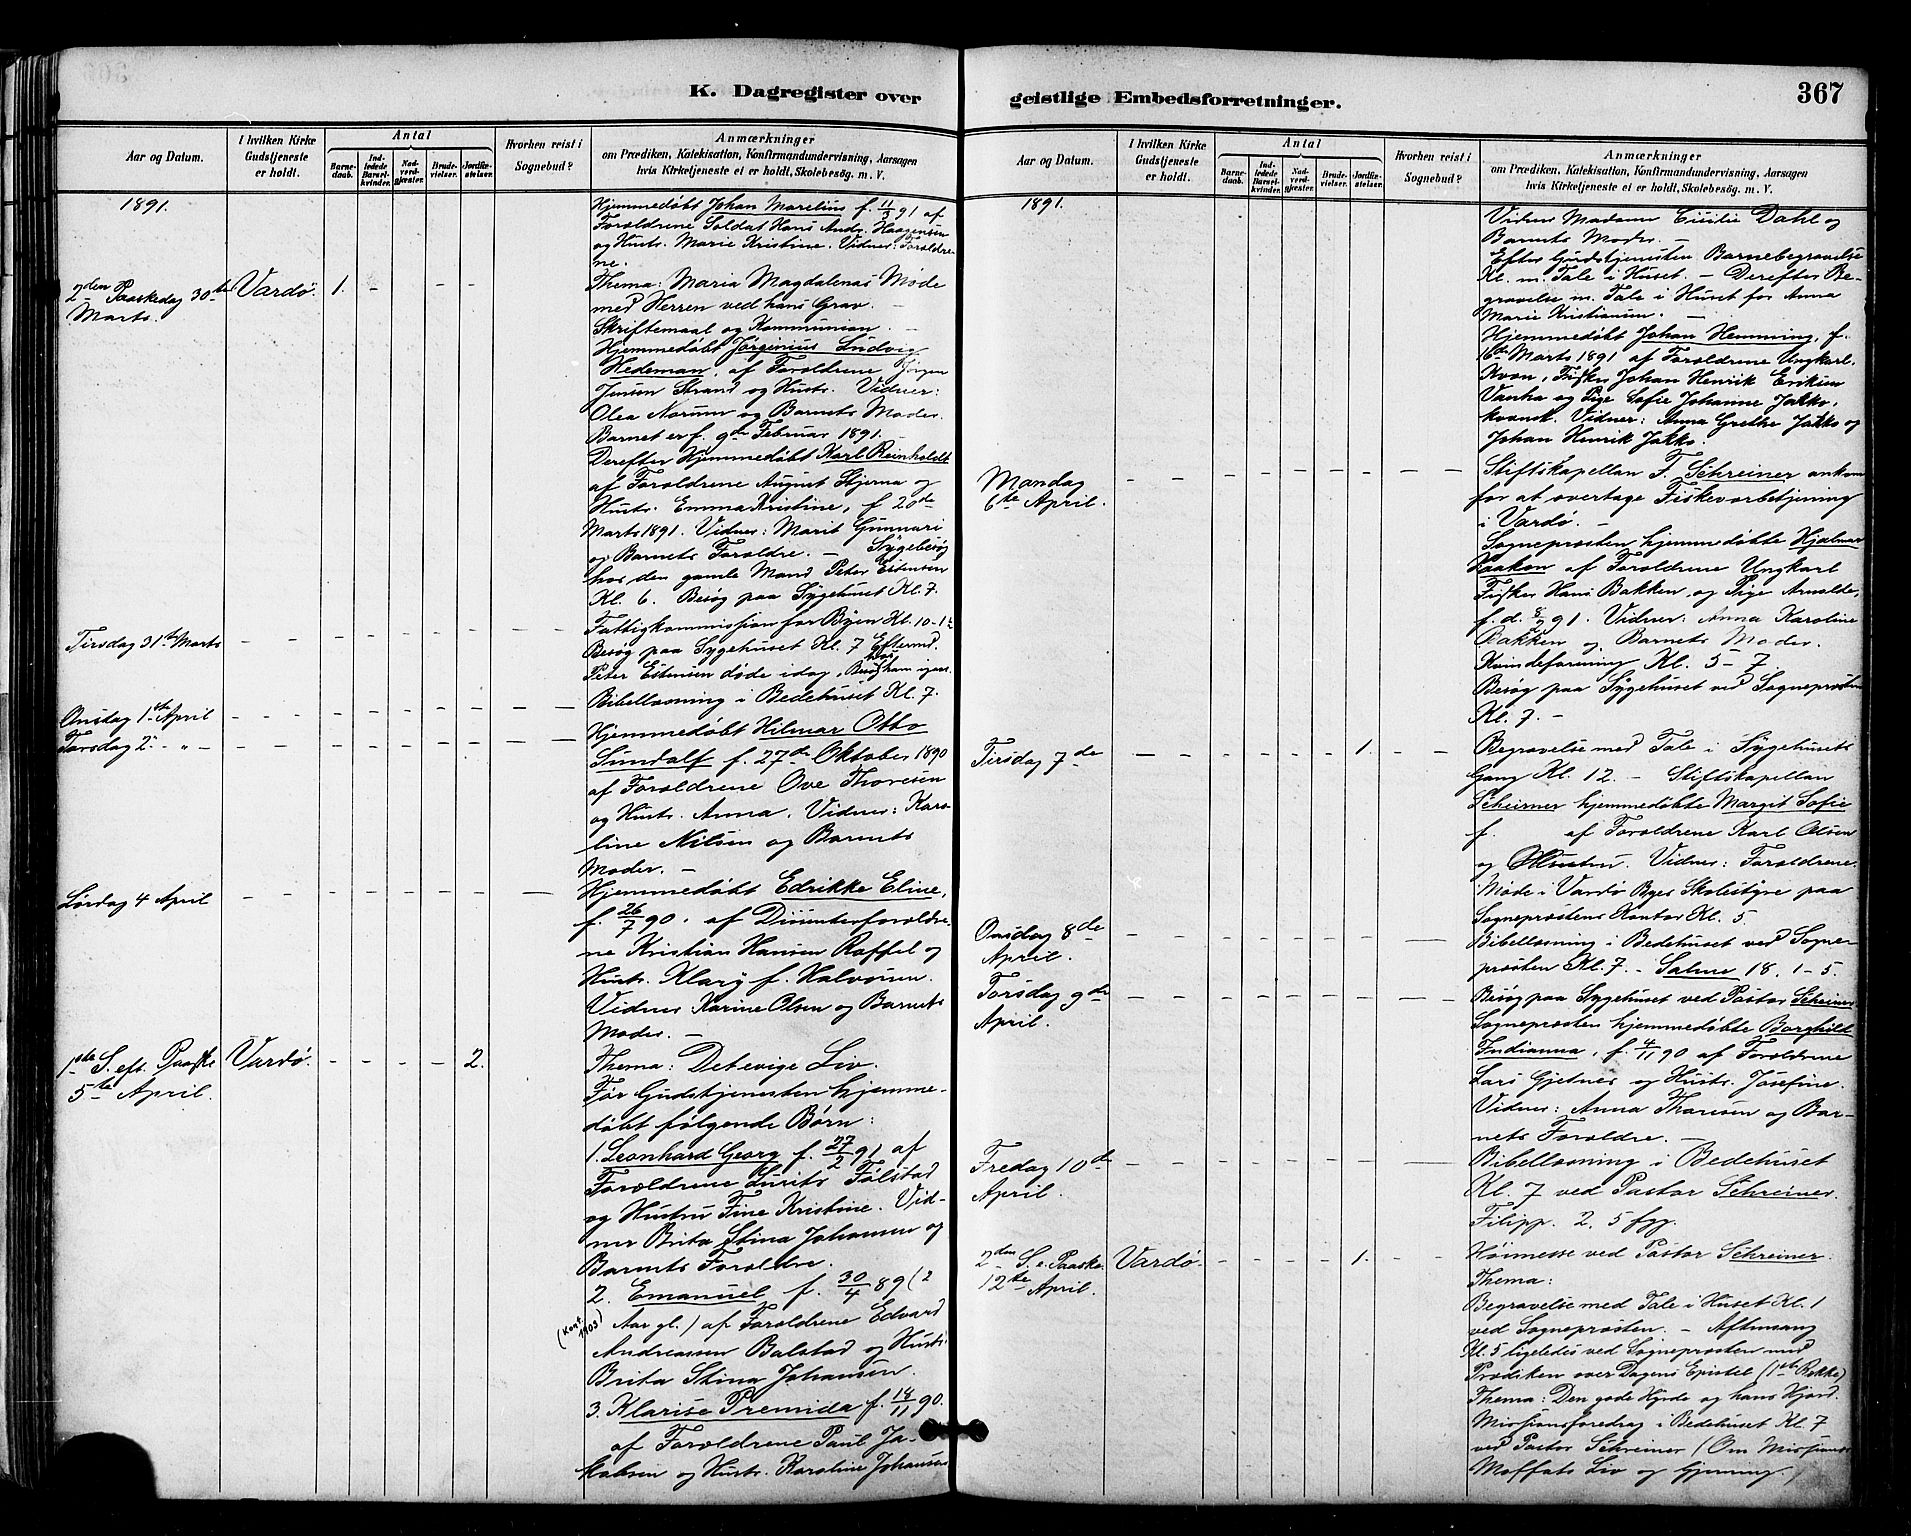 K. Dagregister over
Aar og Datum.
I hvilken Kirke
Gudstjeneste
er holdt.
Antal
Barne-
daab.
Ind-
ledede
Barsel-
kvinder.
Nad-
verd-
gjæster.
Brude-
vielser.
Jordfæ-
stelser.
Hvorhen reist i
Sognebud?
Anmærkninger
om Prædiken, Katekisation, Konfirmandundervisning, Aarsagen
hvis Kirketjeneste ei er holdt, Skolebesøg. m. V.
1891.
Hjemmedøbt Johan Marelius f. 11/3 91 af
Forældrene Soldat Hans Andr. Haagensen
og Hustr. Marie Kristine. Vidner: Forældre
ne.
2den Paaskedag 30te Vardö. 1. - - - -
Marts.
Thema: Maria Magdalenas Møde
med Herren ved hans Grav. -
Skriftemaal og Kommunion. -
Hjemmedøbt Jørginius Ludvig
Hedeman, af Forældrene Jørgen
Jensen Strand og Hustr. Vidner:
Olea Norum og Barnets Moder.
Barnet er f. 9de Februar 1891. -
Derefter Hjemmedøbt Karl Reinholdt
af Forældrene August Stjerna og
Hustr. Emma Kristine, f 20de
Marts 1891. Vidner: Marit Gunnari
og Barnets Forældre. - Sygebesøg
hos den gamle Mand Peter Estensen
Kl. 6. Besøg paa Sygehuset Kl. 7.
Tirsdag 31te Marts - - - - - - -
Fattigkommission for Byen Kl. 10-1
Besøg paa Sygehuset Kl. 7 Eftermd.
Peter Estensen døde idag, Besøg hos ham igaar.
Onsdag 1ste April - - - - - - -
Bibellæsning i Bedehuset Kl. 7.
Torsdag 2. - " - - - - - - - -
Hjemmedøbt Hilmar Otto
Sundalf f. 27de Oktober 1890
af Forældrene Ove Thoresen
og Hustr. Anna. Vidner: Karo
line Nilsen og Barnets
Moder. -
Lørdag 4 April - - - - - - -
Hjemmedøbt Edrikke Eline,
f. 26/7 90. af Dissenterforældre-
ne Kristian Hansen Raffel og
Hustr. Klary f. Halvorsen.
Vidner Karine Olsen og Barnets
Moder. -
1ste S. eft. Paaske Vardö. - - - - 2.
5te April.
Thema: Det evige Liv.
Før Gudstjenesten hjemme-
døbt følgende Børn:
1. Leonhard Georg f. 27/2 91 af
Forældrene Lurits Følstad
og Hustru Fine Kristine. Vid-
ner Brita Stina Johansen og
Barnets Forældre.
2. Emanuel f. 30/4 89 (2
(Konf. 1903)
Aar gl.) af Forældrene Edvard
Andreassen Balstad og Hustr.
Brita Stina Johansen.
3. Klarise Premida f. 18/11 90.
af Forældrene Paul Ja-
kobsen og Hustr. Karoline Johansen
geistlige Embedsforretninger.
367
Aar og Datum.
I hvilken Kirke
Gudstjeneste
er holdt.
Antal
Barne-
daab.
Ind-
ledede
Barsel-
kvinder.
Nad-
verd-
gjæster.
Brude-
vielser.
Jordfæ-
stelser.
Hvorhen reist i
Sognebud?
Anmærkninger
om Prædiken, Katekisation, Konfirmandundervisning, Aarsagen
hvis Kirketjeneste ei er holdt, Skolebesøg m. V.
1891.
Vidner Madame Cecilie Dahl og
Barnets Moder. -
Efter Gudstjenesten Barnebegravelse
Kl. m. Tale i Huset. - Derefter Be-
gravelse m. Tale i Huset for Anna
Marie Kristiansen. -
Hjemmedøbt Johan Hemming, f.
16de Marts 1891 af Forældrene Ungkarl.
Kvæn, Fisker Johan Henrik Eriksen
Vanha og Pige Sofie Johanne Jakko,
kvænsk. Vidner: Anna Grethe Jakko og
Johan Henrik Jakko.
Mandag - - - - - - -
6te April.
Stiftskapellan F. Schreiner ankom
for at overtage Fiskeværbetjening
i Vardö. -
Sogneprosten hjemmedøbte Hjalmar
Haakon af Forældrene Ungkarl
Fisker Hans Bakken, og Pige Arnolde,
f. d. 8/2 91. Vidner: Anna Karoline
Bakken og Barnets Moder.
Kvindeforening Kl. 5-7.
Besøg paa Sygehuset ved Sogneprosten
Kl. 7. -
Tirsdag 7de - - - - - 1. - -
Begravelse med Tale i Sygehusets
Gang Kl. 12. - Stiftskapellan
Schreiner hjemmedøbte Margit Sofie
f. af Forældrene Karl Olsen
og Hustru. Vidner: Forældrene.
Møde i Vardö Byes Skolestyre paa
Sogneprostens Kontor Kl. 5
Onsdag 8de - - - - - - -
April.
Bibellæsning i Bedehuset ved Sogne-
prosten Kl. 7. - Salme 18. 1-5.
Torsdag 9de - - - - - - -
April.
Besøg paa Sygehuset ved Pastor Schreiner
Sogneprosten hjemmedøbte Borghild
Indianna, f. 4/11 90 af Forældrene
Lars Gjetnes og Hustr. Josefine.
Vidner: Anna Thoresen og Bar-
nets Forældre. -
Fredag 10de - - - - - - -
April.
Bibellæsning i Bedehuset
Kl. 7 ved Pastor Schreiner.
Filipp. 2. 5 fgg.
2den S. e. Paaske Vardö. - - - - 1. - -
12te April.
Høimesse ved Pastor Schreiner.
Thema:
Begravelse med Tale i Huset Kl. 1
ved Sogneprosten. - Aftensang
Kl. 5 ligeledes ved Sogneprosten med
Prædiken over Dagens Epistel (1ste Række)
Thema: Den gode Hyrde og hans Hjord.
Missionsforedrag i Bedehuset Kl. 7
ved Pastor Schreiner (Om Missionær
Moffats Liv og Gjerning.)